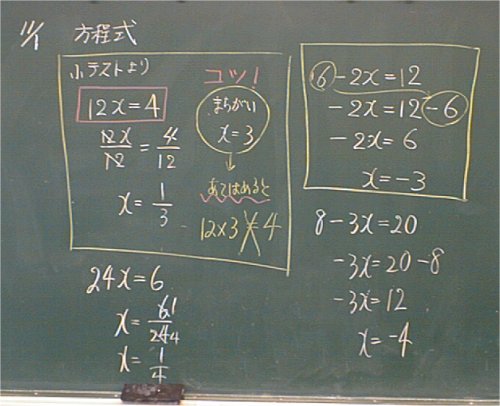 11/1 方程式
小テストより
12x=4
12x/12=4/12
x=1/3
コツ!
まちがい
x=3
あてはめると
12×3≠4
24x=6
x=6 1/24 4
x=1/4
6-2x=12
-2x=12-6
-2x=6
x=-3
8-3x=20
-3x=20-8
-3x=12
x=-4